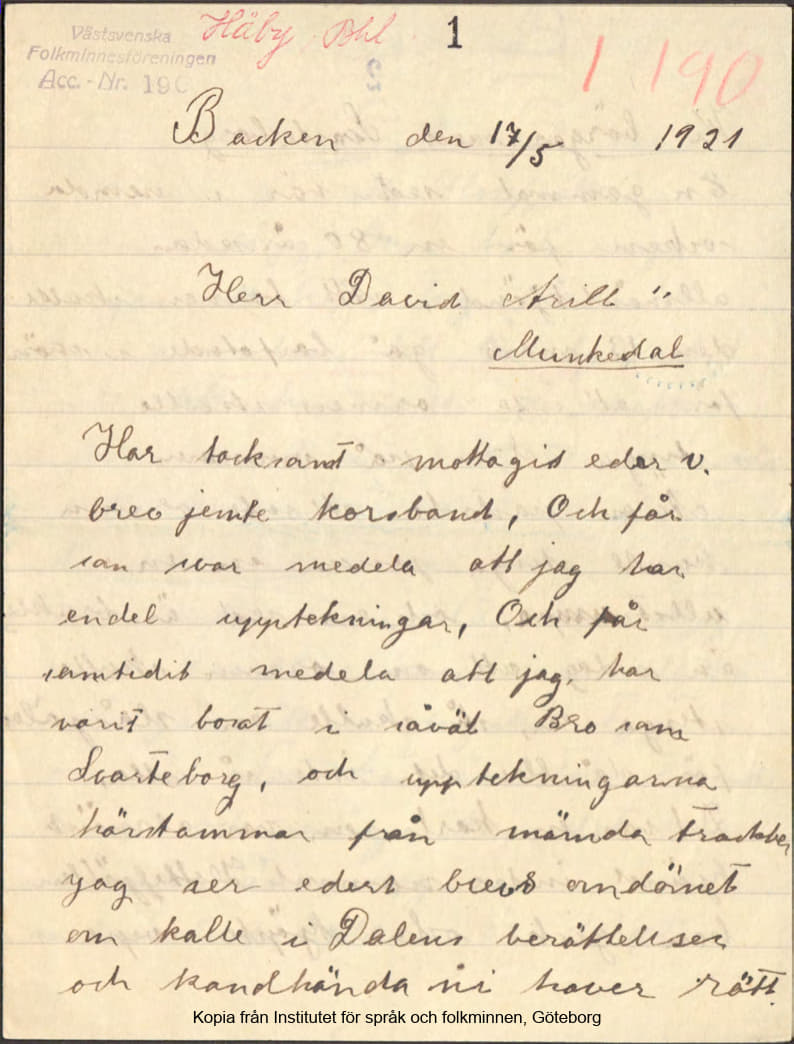 Västsvenska
Folkminnesföreningen
Acc.-Nr. 190
Håby Bhl.
1
1 190
Backen den 17/5 1921
Herr David Arill
Munkedal
Har tacksamt mottagit eder v.
brev jemte korsband, Och får
som svar medela att jag har
endel upptekningar, Och får
samtidit medela att jag har
varit borat i såväl Bro som
Svarteborg, och upptekningarna
härstammar från nämda trackter
yag ser edert brevs omdömet
om kalle i Dalens berättelser
och kandhända ni haver rätt.
Kopia från Institutet för språk och folkminnen, Göteborg